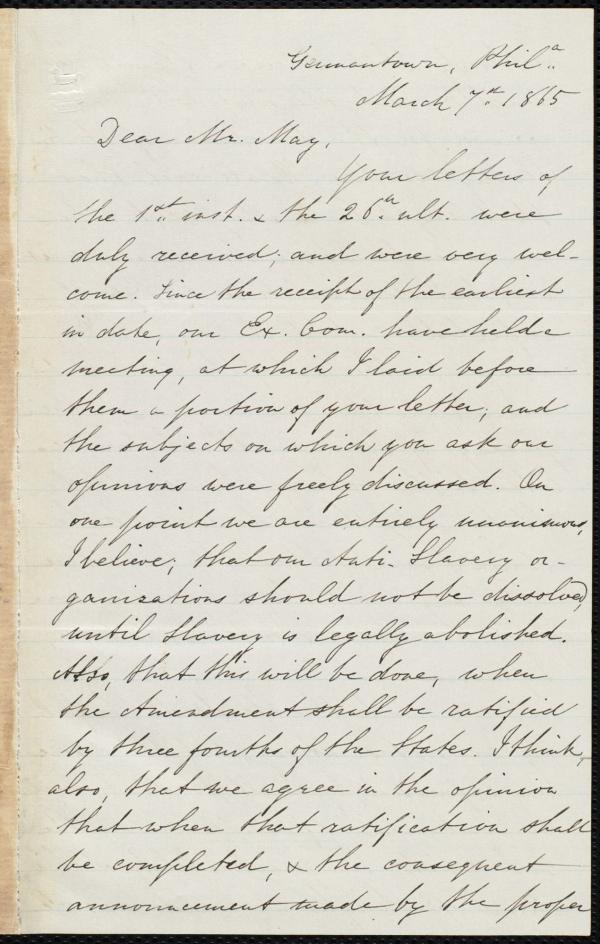 Germantown, Phil.a
March 7th. 1865
Dear Mr. May,
Your letters of
the 1st. inst. & the 26th. ult. were
duly received; and were very wel-
come. Since the receipt of the earliest
in date, our Ex. Com. have held a
meeting, at which I laid before
them a portion of your letter; and
the subjects on which you ask our
opinions were freely discussed. On
one point we are entirely unanimous,
I believe; that our Anti-Slavery or-
ganizations should not be dissolved,
until Slavery is legally abolished.
Also, that this will be done, when
the Amendment shall be ratified
by three fourths of the States. I think,
also, that we agree in the opinion
that when that ratification shall
be completed, & the consequent
announcement made by the proper